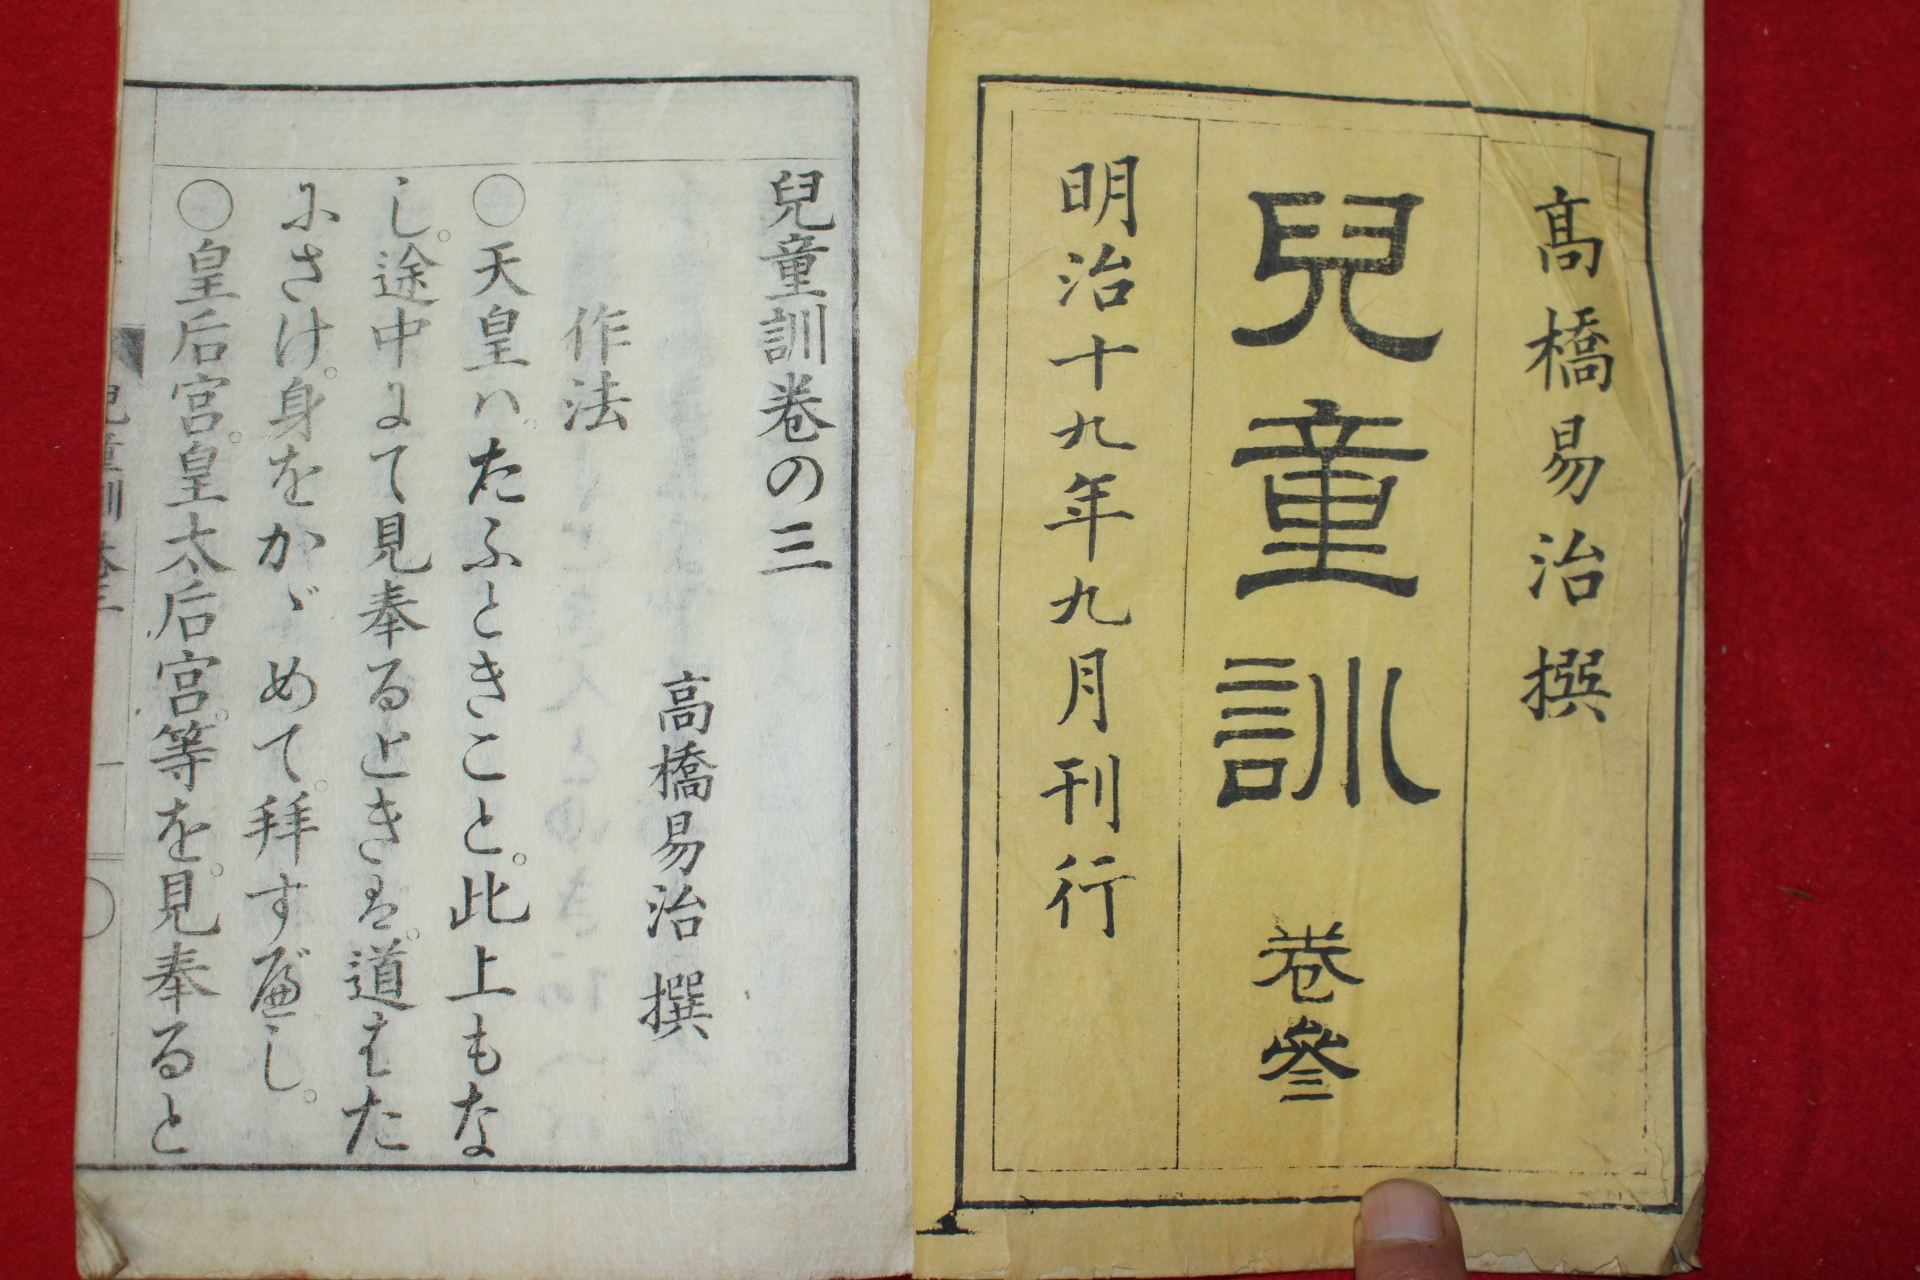 高橋易治撰
兒童訓 卷參
明治十九年九月刊行
兒童訓卷の三
高橋易治 撰
作法
○天皇ハ。たふときこと。此上もな
し。途中にて見奉るときは。道はた
にさけ。身をかゞめて。拜すべし。
○皇后宮。皇太后宮。等を。見奉ると